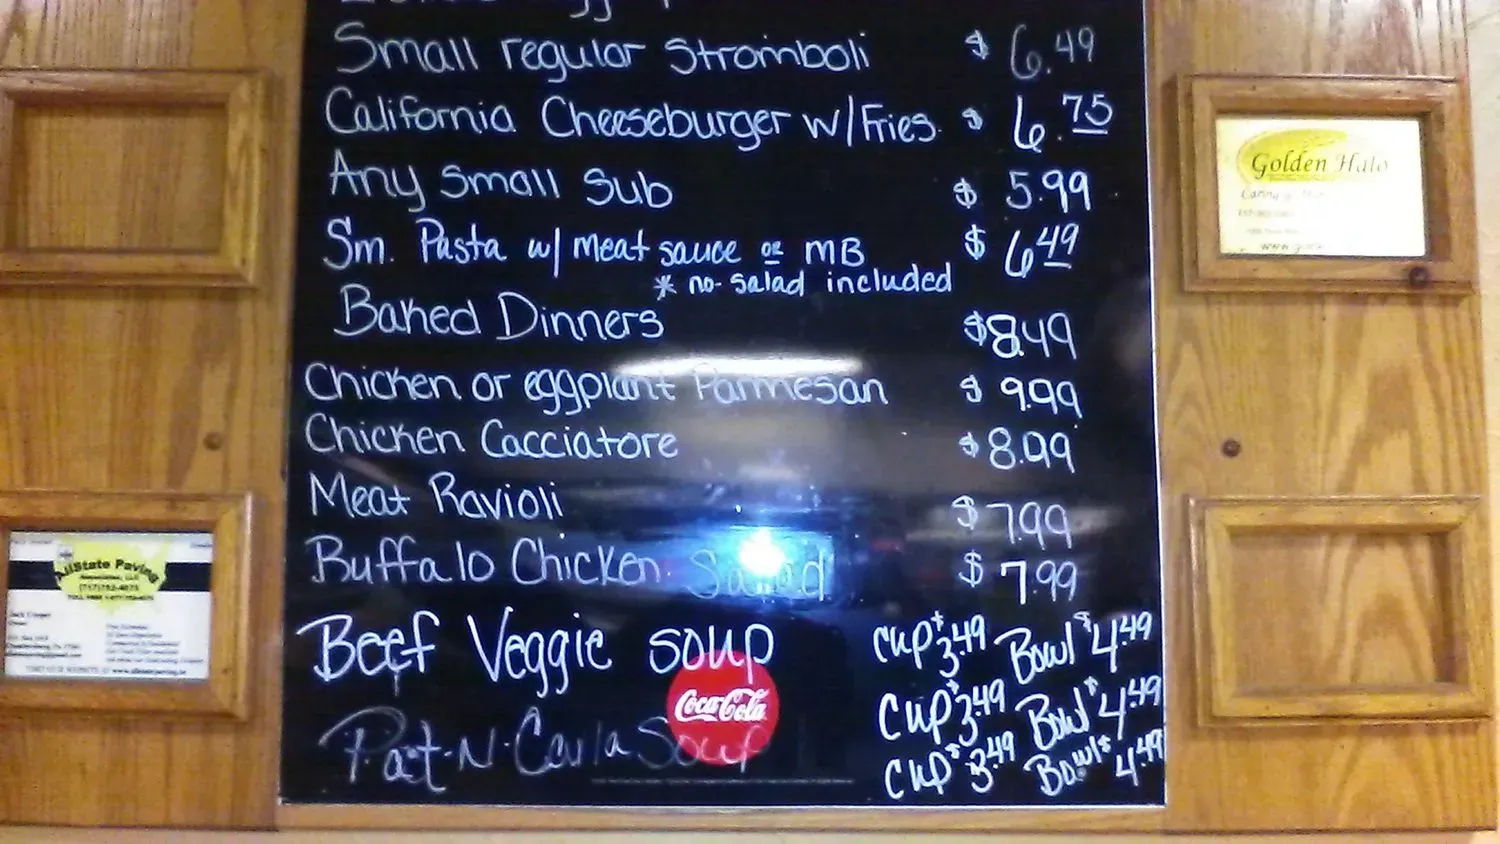 Small regular Stromboli $ 6.49
California Cheeseburger w/Fries $ 6.75
Any Small Sub $ 5.99
Sm. Pasta w/ meat sauce or MB $ 6.49
* no salad included
Baked Dinners $8.49
Chicken or eggplant Parmesan $ 9.99
Chicken Cacciatore $8.99
Meat Ravioli $7.99
Buffalo Chicken Salad $ 7.99
Beef Veggie soup cup $3.49 Bowl $4.49
cup $3.49 Bowl $4.49
Pat-N-Carla Soup cup $3.49 Bowl $4.49
Coca-Cola
Golden Halo
AllState Paving
(717)762-4073